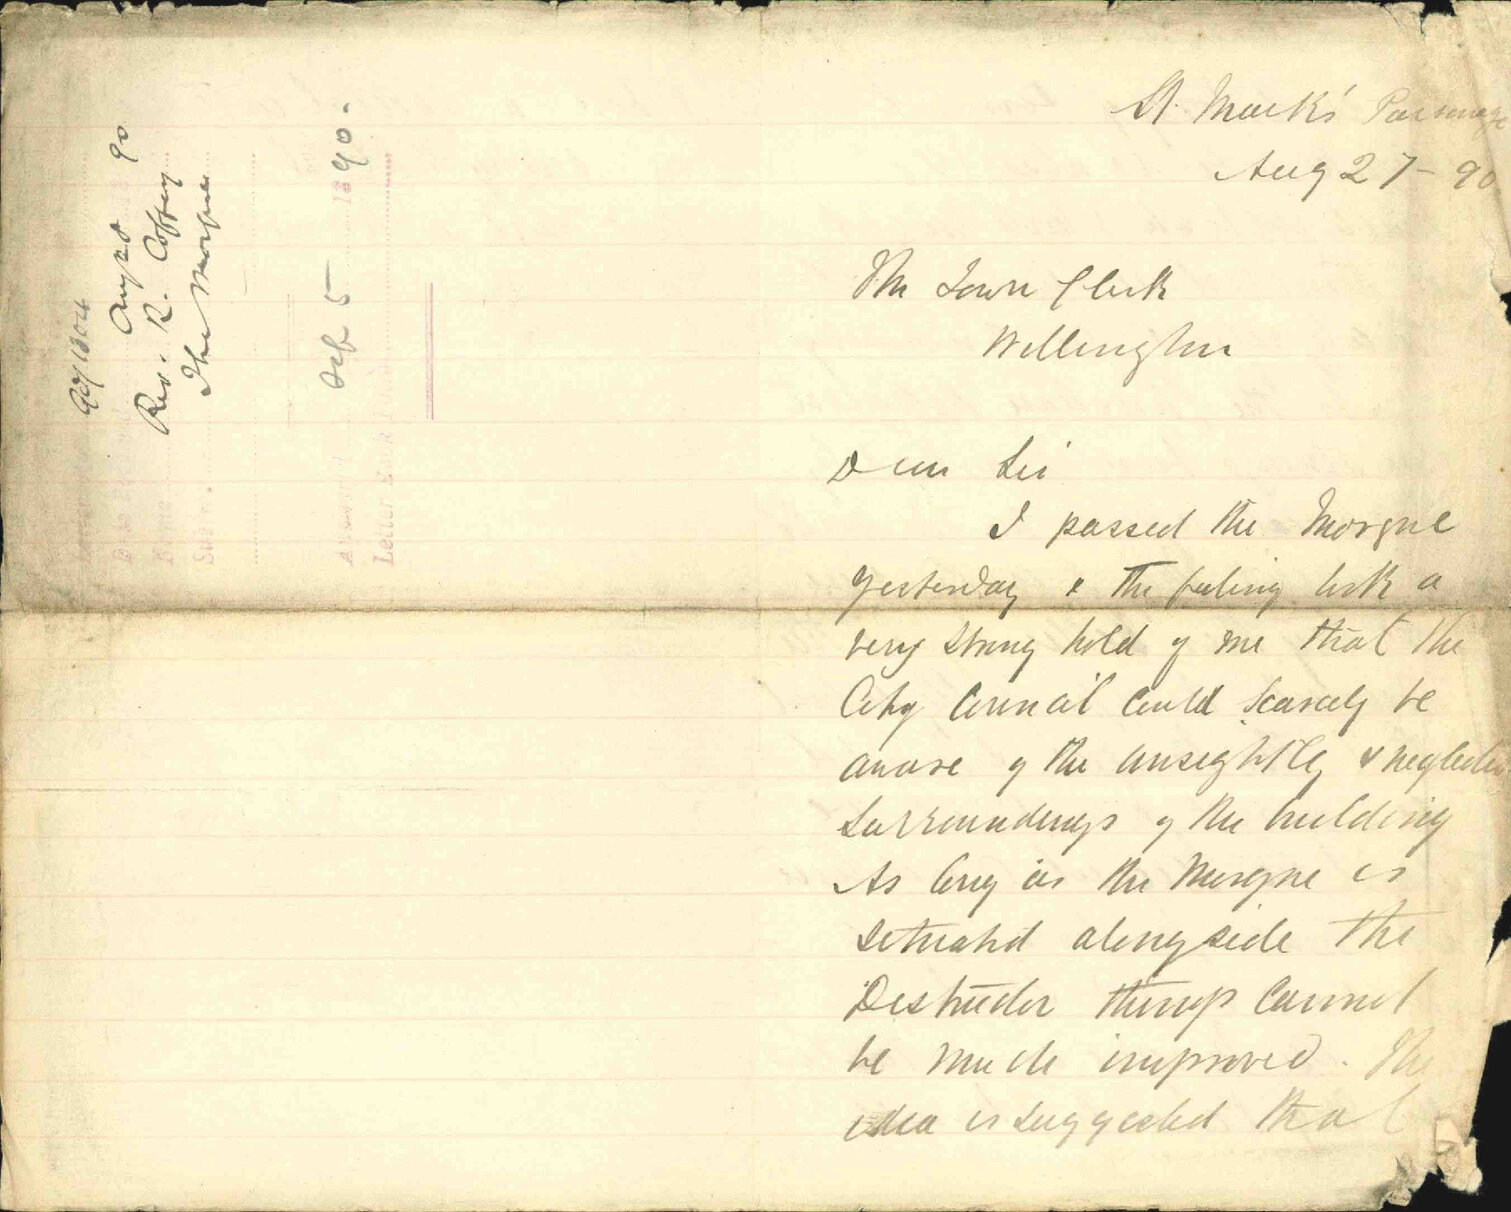 90/1304
Aug 28 90
Rev. R. Coffey
The Morgue
Name
Subject
Sep 5 1890.
Answered
Letter Book Folio
St. Mark's Parsonage
Aug 27 - 90
The Town Clerk
Wellington
Dear Sir
I passed the Morgue
yesterday & the feeling took a
very strong hold of me that the
City Council could scarcely be
aware of the unsightly & neglected
surroundings of the building
As long as the Morgue is
situated alongside the
Destructor things cannot
be much improved. The
idea is suggested that